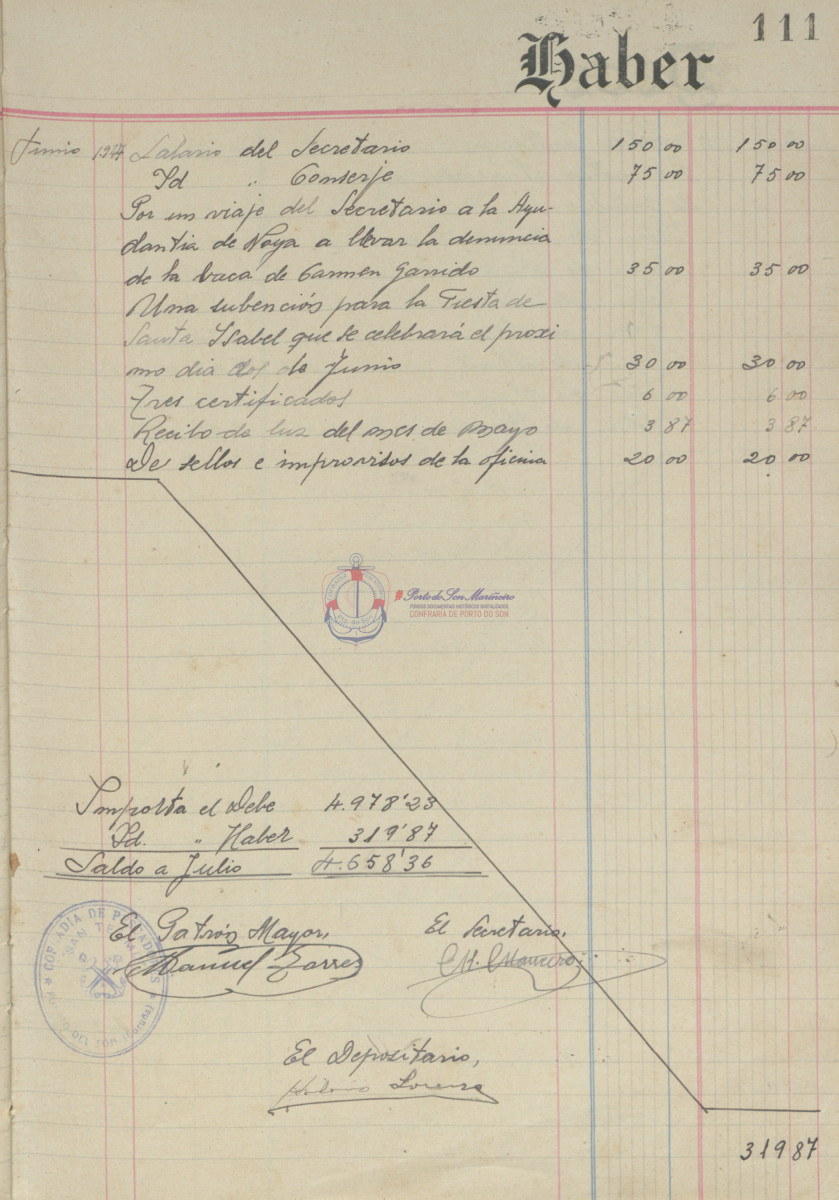 111
Haber
Junio 1944 Salario del Secretario 150 00 150 00
Id " Conserje 75 00 75 00
Por un viaje del Secretario a la Ayu-
dantia de Noya a llevar la denuncia
de la vaca de Carmen Garrido 35 00 35 00
Una subención para la Fiesta de
Santa Isabel que se celebrará el proxi
mo dia dos de Junio 30 00 30 00
Tres certificados 6 00 6 00
Recibo de luz del mes de mayo 3 87 3 87
De sellos e improvistos de la oficina 20 00 20 00
Porto do Son Mariñeiro
FONDOS DOCUMENTAIS HISTÓRICOS DIXITALIZADOS
CONFRARÍA DE PORTO DO SON
Importa el Debe 4.978'23
Id. " Haber 319'87
Saldo a Julio 4.658'36
El Patrón Mayor, El Secretario,
Manuel Torres
COFRADIA DE PESCADORES
SAN TELMO
PUERTO DEL SON (Coruña)
El Depositario,
Lorenzo
319 87